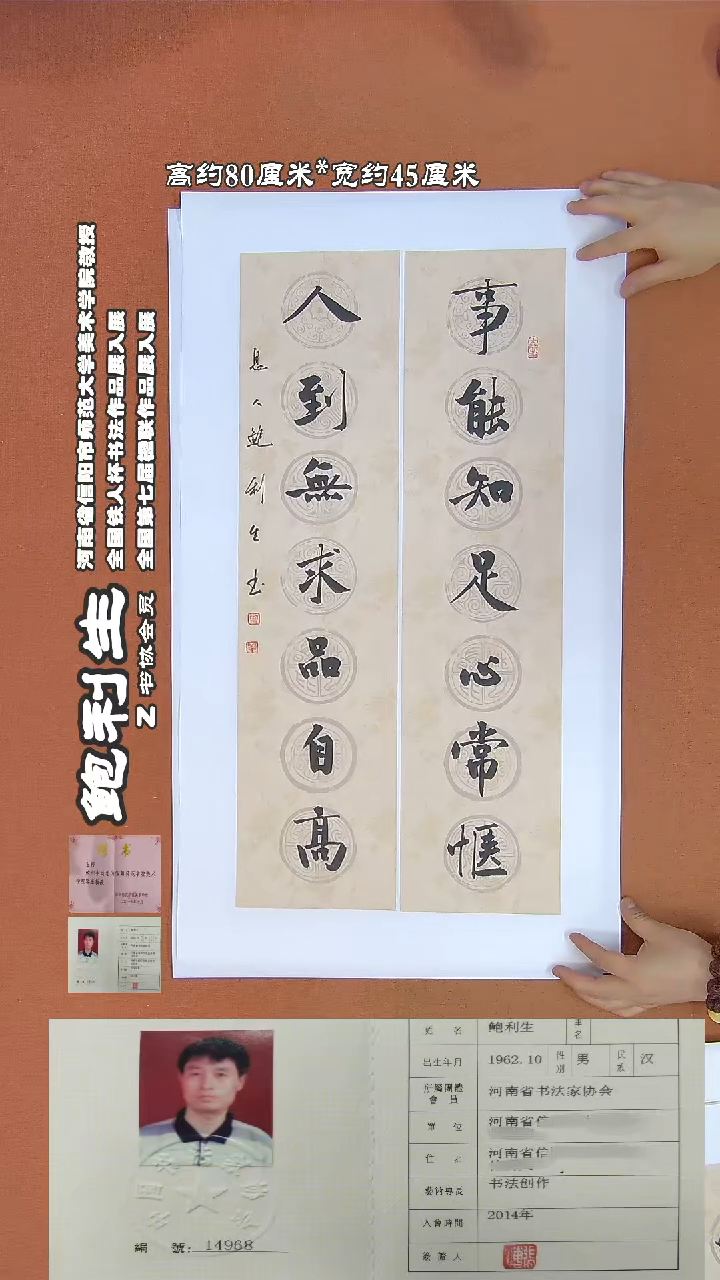 高约80厘米*宽约45厘米
事能知足心常惬
人到無求品自高
息人鲍利生书
河南省信阳市师范大学美术学院教授
全国铁人杯书法作品展入展
全国第七届楹联作品展入展
鲍利生
Z书协会员
聘书
姓名 鲍利生
出生年月 1962.10 性别 男 民族 汉
所屬團體會員 河南省书法家协会
單位 河南省信
住 河南省信
藝術專長 书法创作
入會時間 2014年
編號：14968